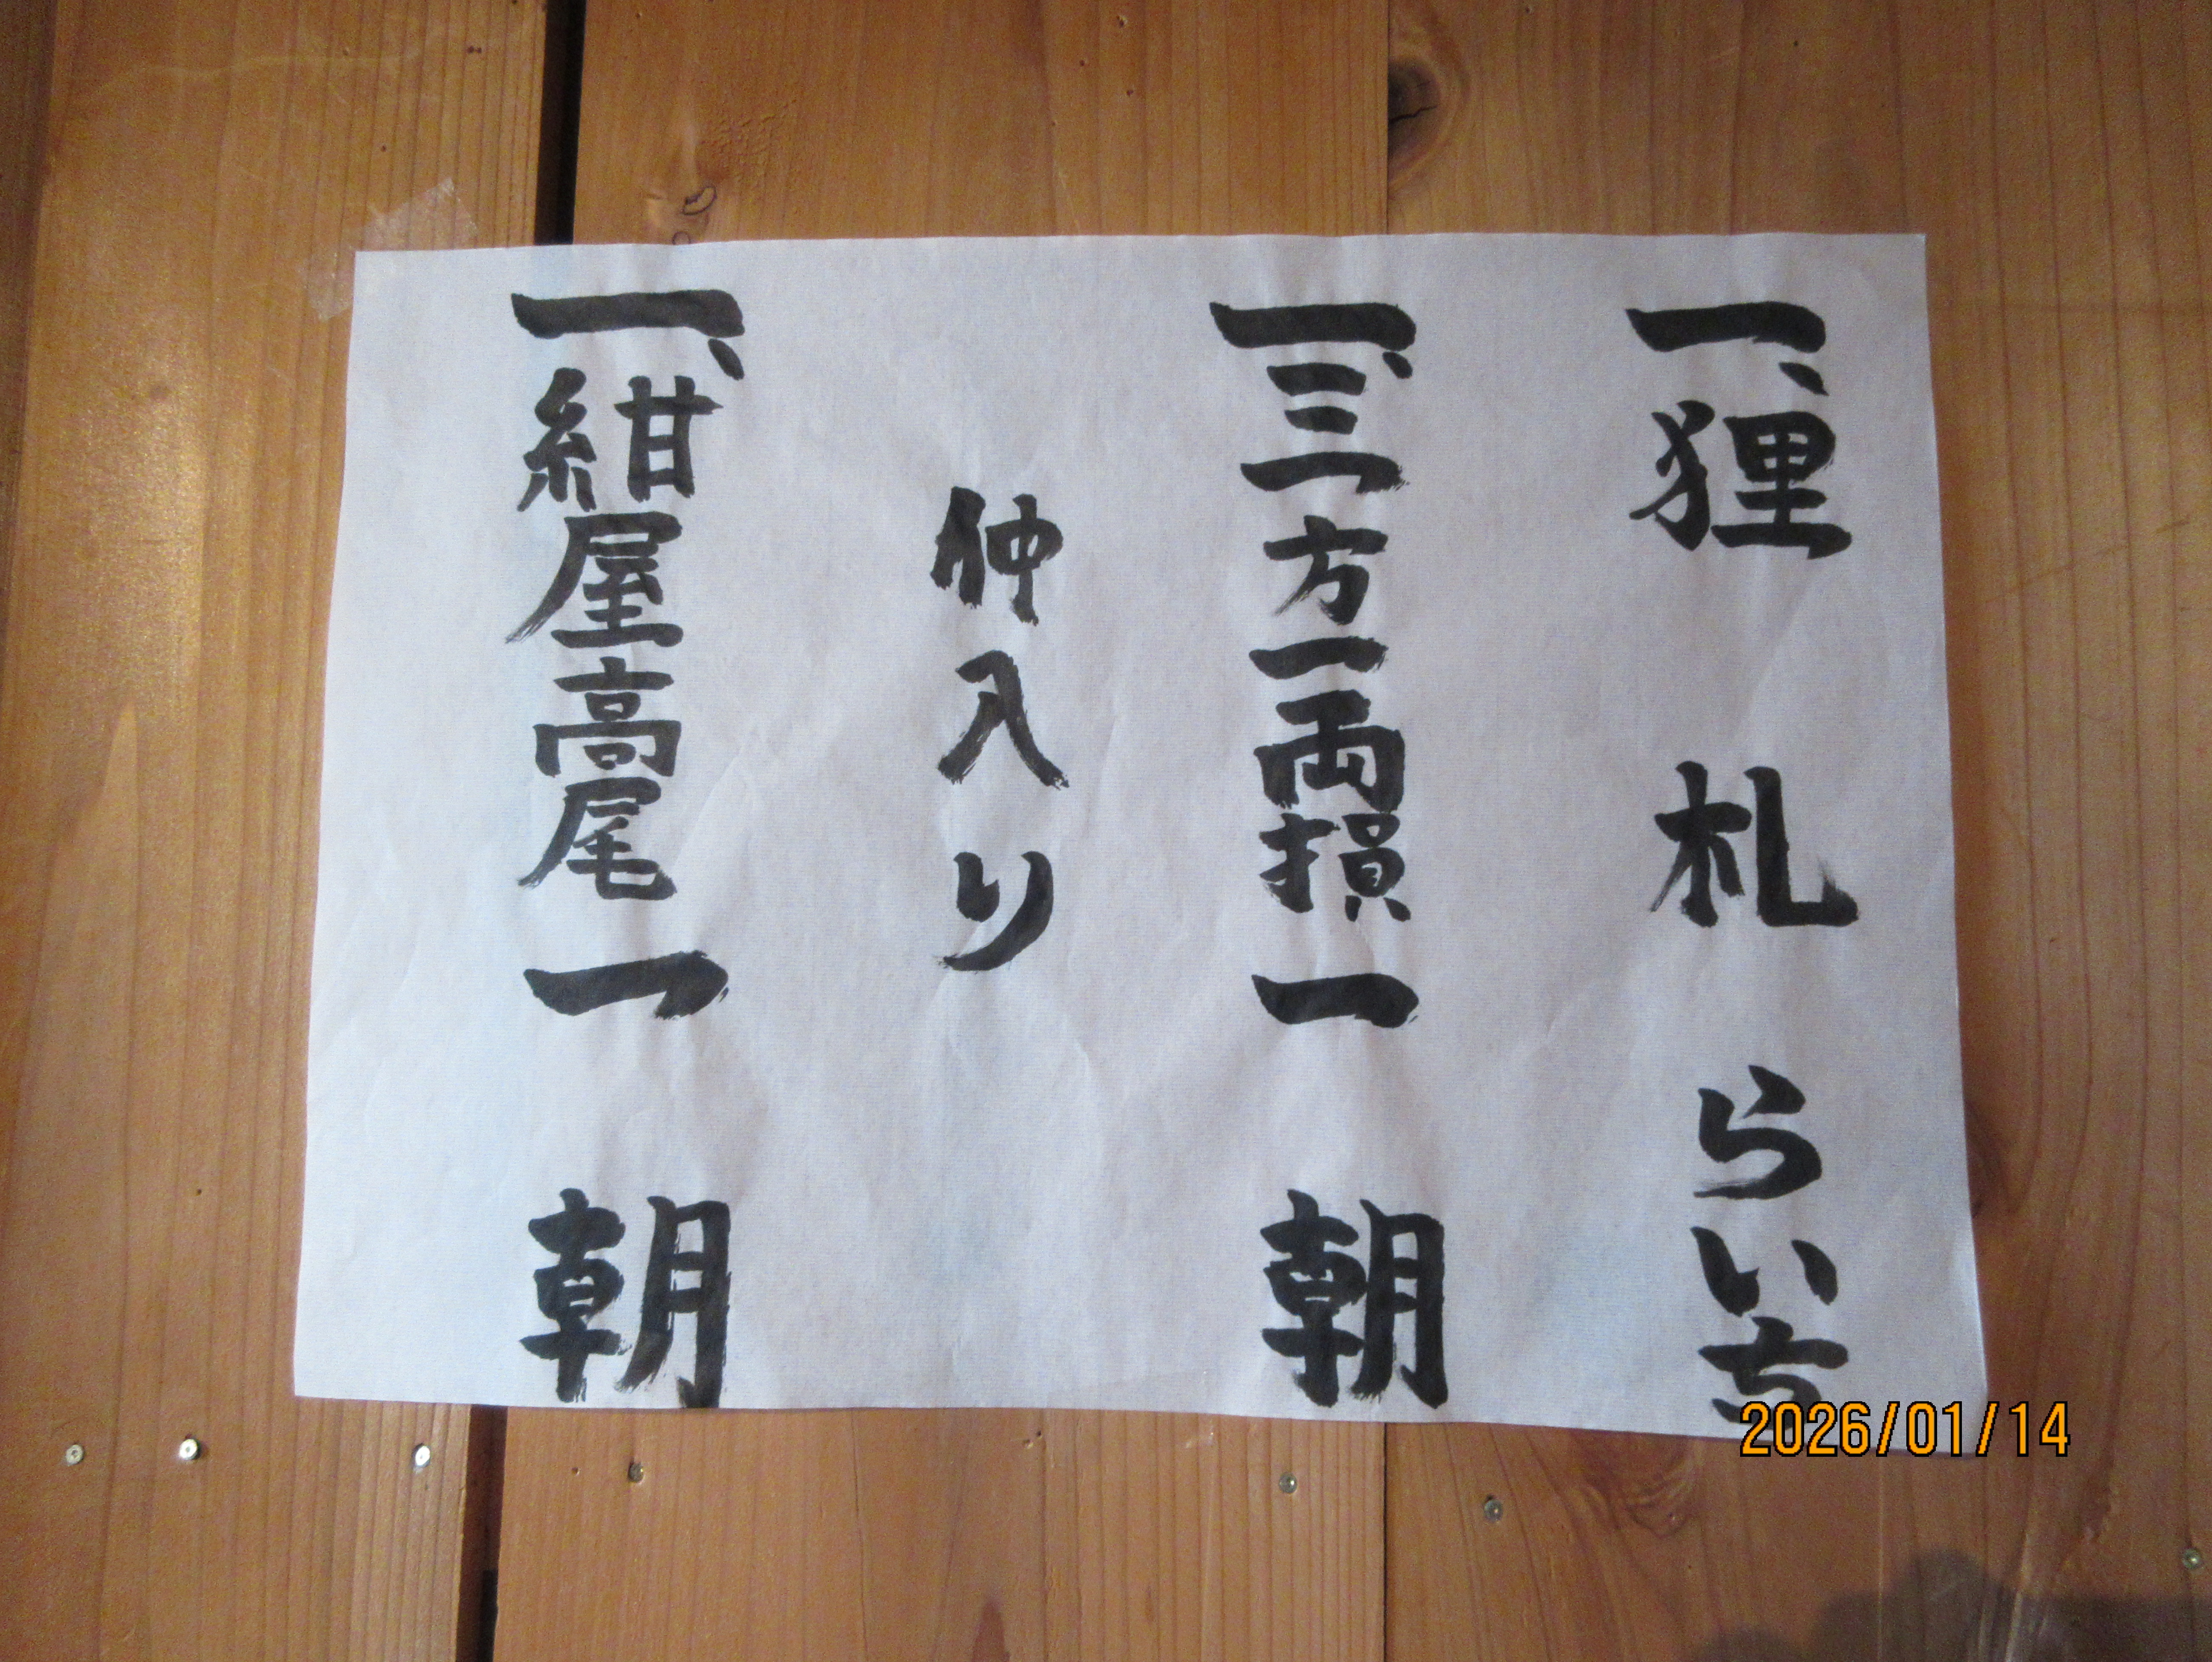 一、狸 札 らいち
一、三方一両損 一 朝
仲入り
一、紺屋高尾 一 朝
2026/01/14